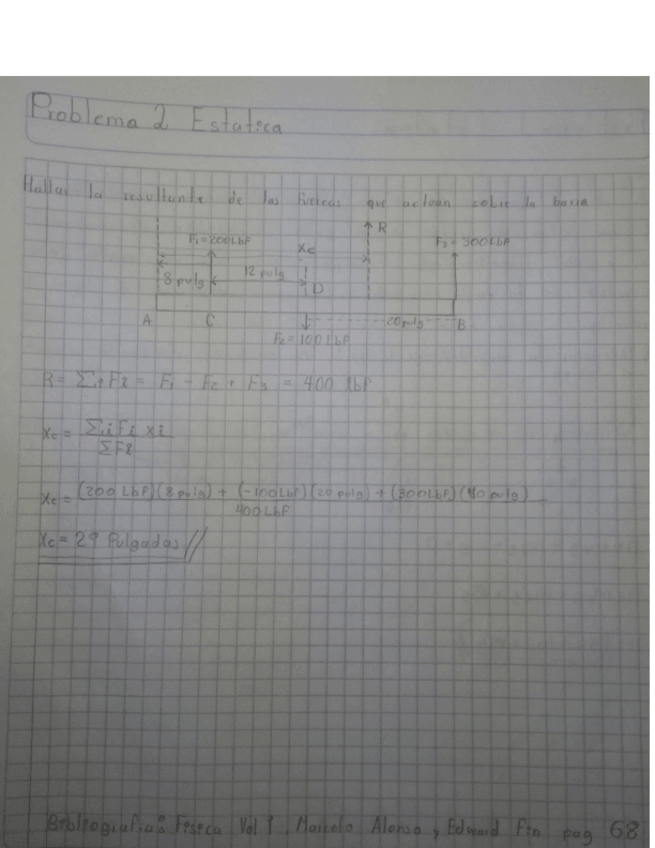 Problema 2 Estatica
Hallar la resultante de las fuerzas que actuan sobre la barra
R
F₁=200LbF
Xc
F₃=300LbF
8 pulg
12 pulg
D
A
C
20pulg
B
F₂=100LbF
R= Σi Fi = F₁ - F₂ + F₃ = 400 lbF
Xc = Σi Fi xi
ΣFi
Xc = (200 LbF)(8 pulg) + (-100LbF)(20 pulg) + (300LbF)(40 pulg)
400LbF
Xc = 29 Pulgadas //
Bibliografia: Fisica Vol 1, Marcelo Alonso, Edward Fin pag 68